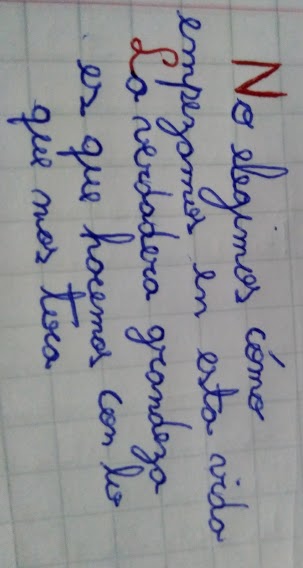 No elegimos cómo
empezamos en esta vida
La verdadera grandeza
es que hacemos con lo
que nos toca